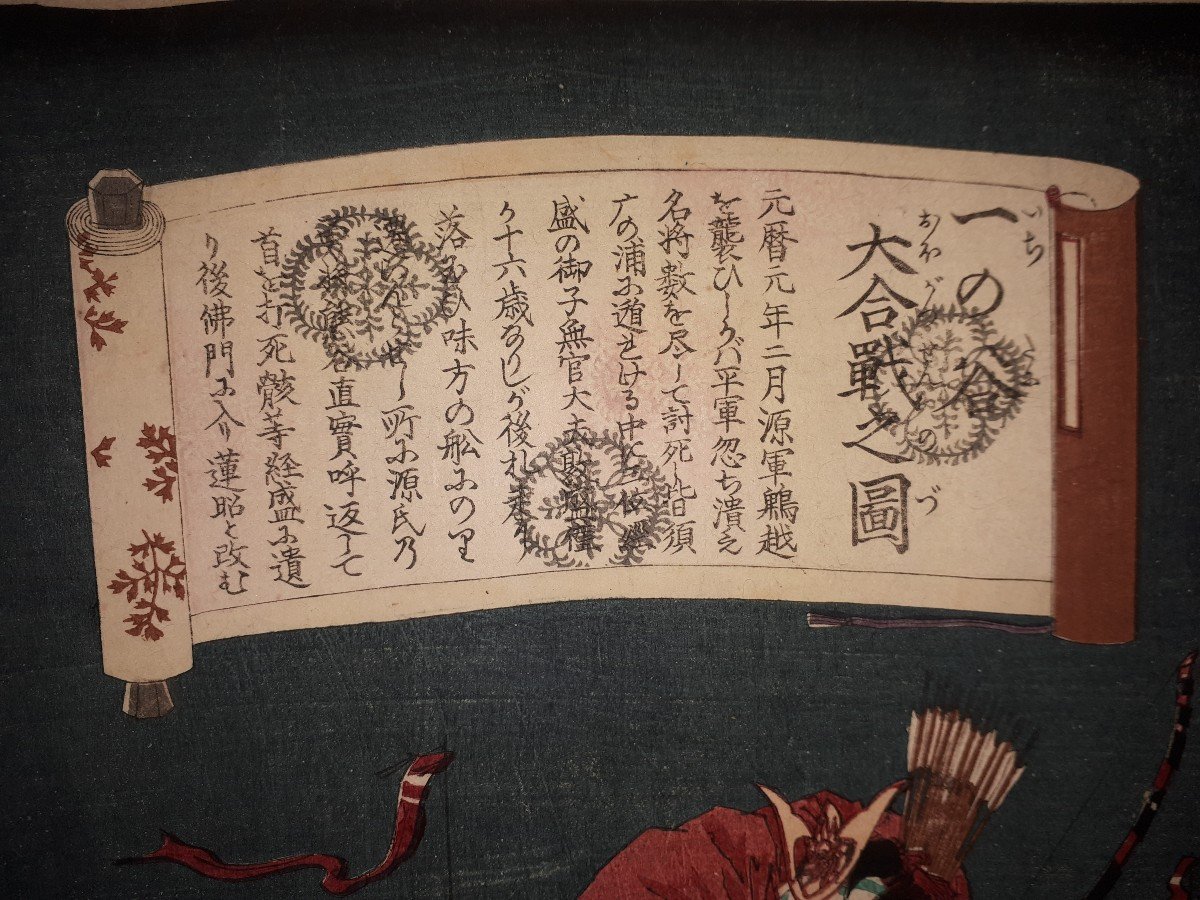 一の谷
いち
大合戰之圖
おおがつせんのづ
元暦元年二月源軍鵯越
を襲ひしかバ平軍忽ち潰え
名将数を尽して討死し此日須
广の浦に遁とける中に
盛の御子無官大夫敦盛
ケ十六歳なりしが後れ来り
落 味方の舩にのり
所に源氏乃
熊谷直實呼返して
首を打死骸等経盛に遺
り後佛門に入り蓮昭と改む